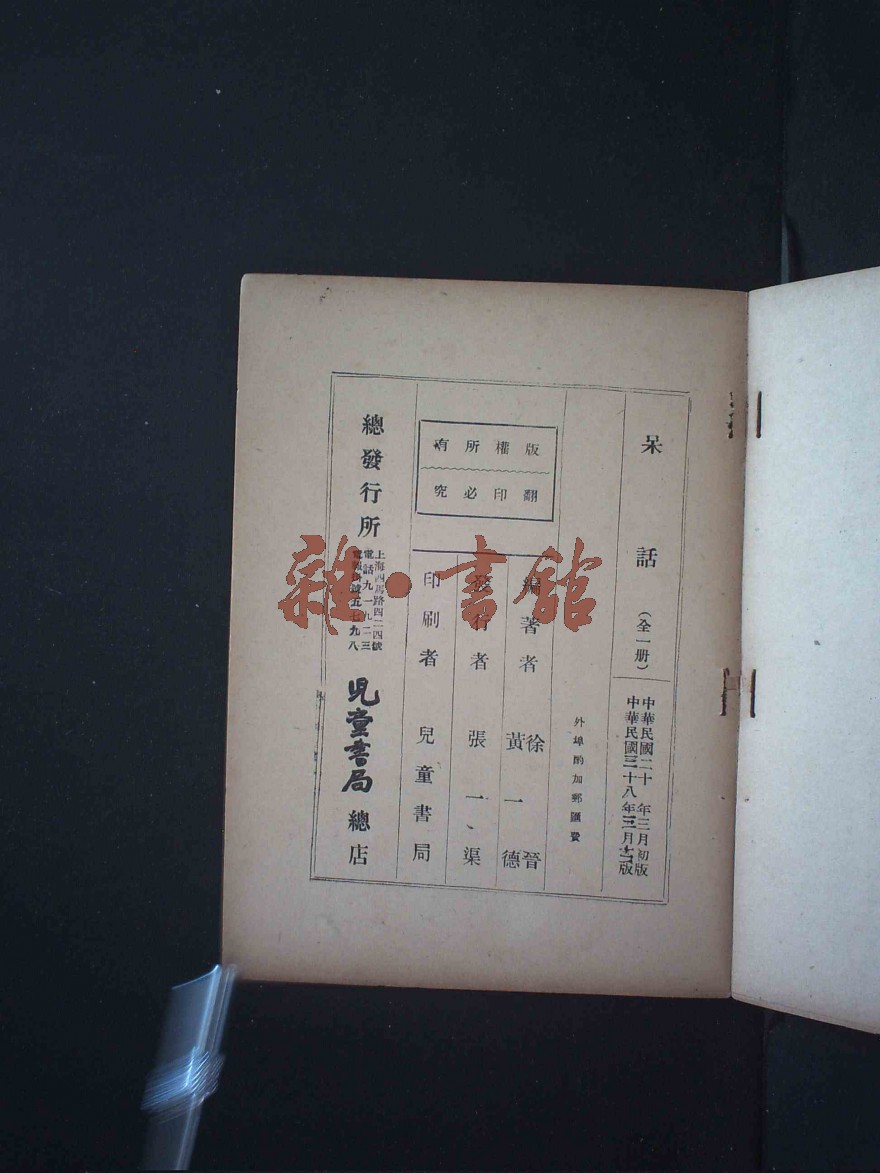 呆話（全一册）
中華民國二十年三月初版
中華民國三十八年三月十二版
外埠酌加郵匯費
版權所有
翻印必究
編著者 徐晉
黃一德
發行者 張一渠
印刷者 兒童書局
總發行所
上海四馬路四二四號
電話九一九二三
電報掛號五七九八
兒童書局總店
雜·書館